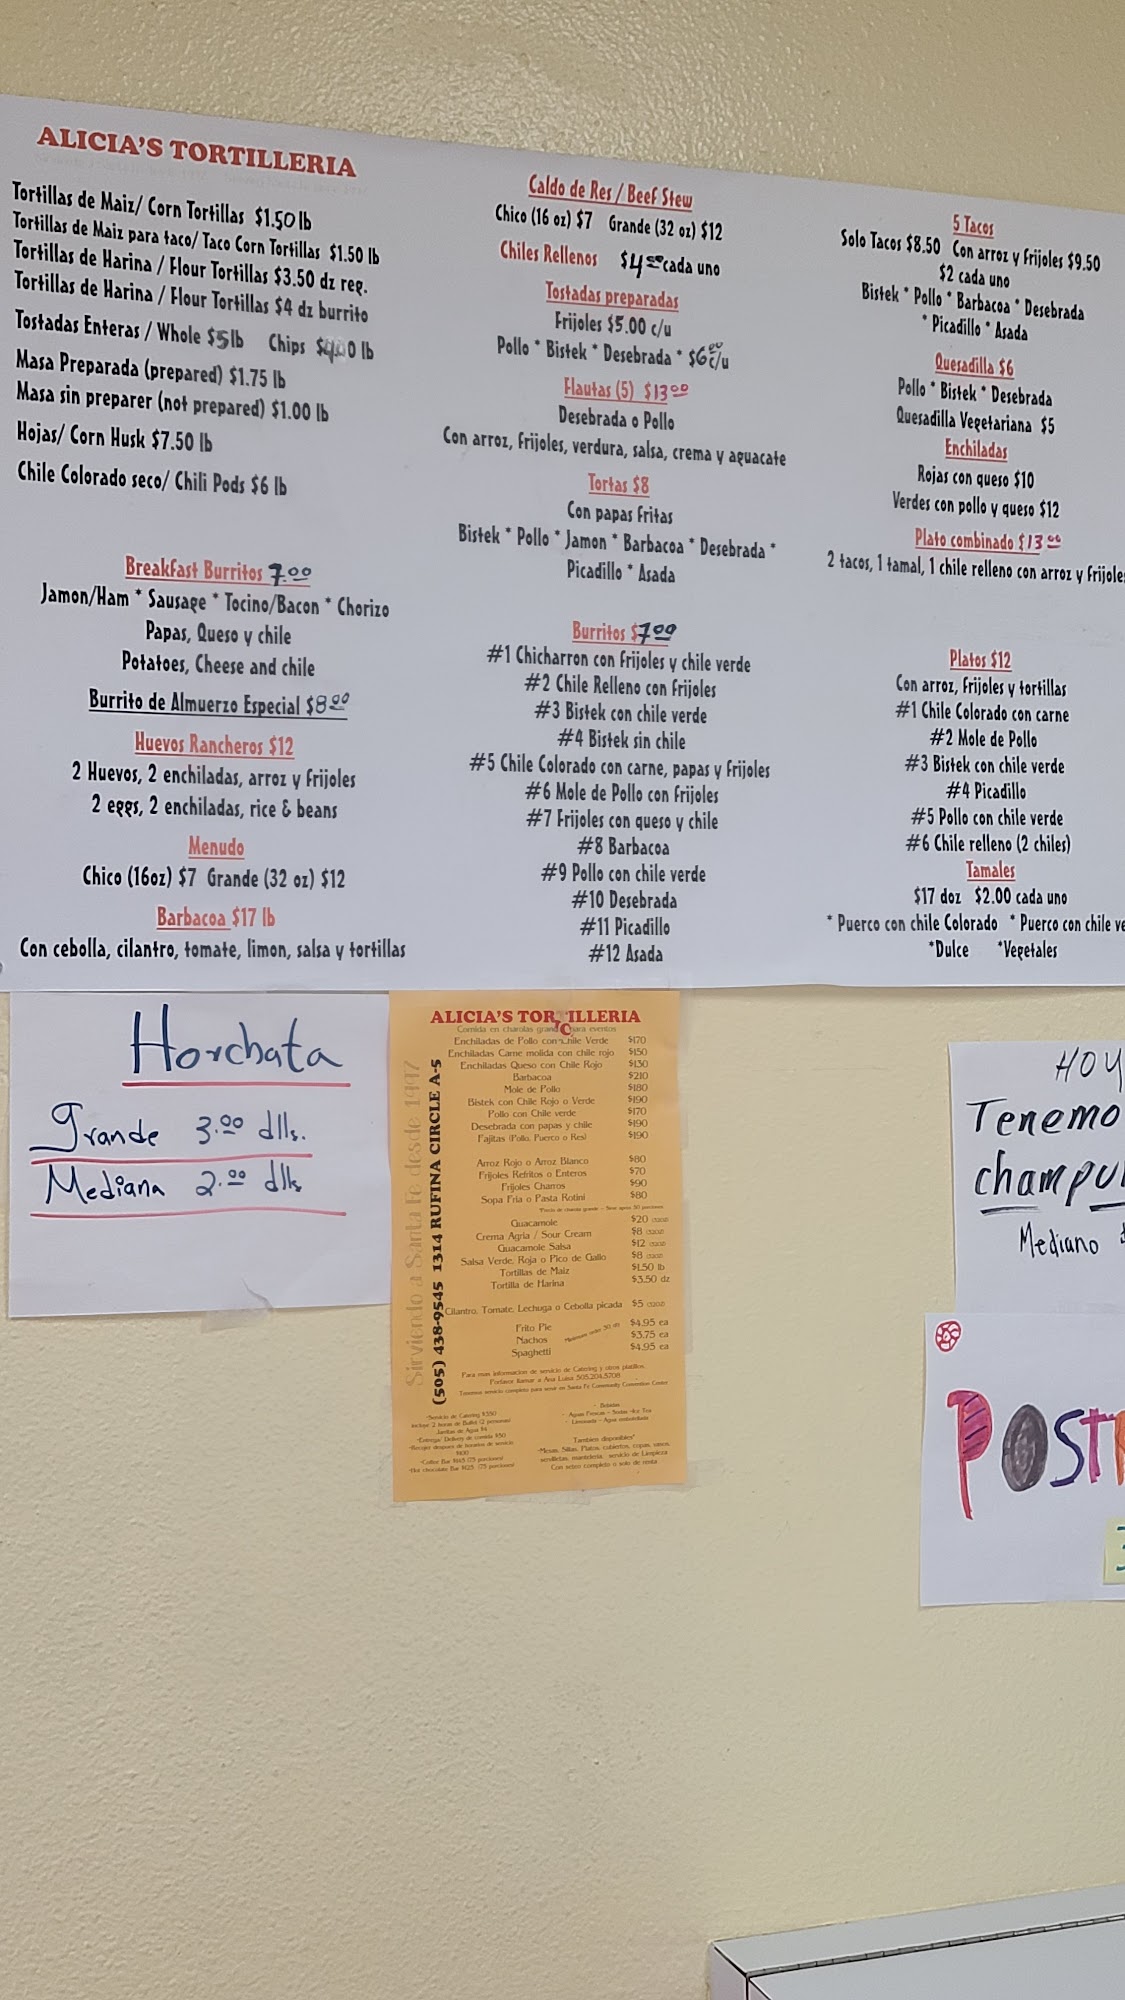 ALICIA'S TORTILLERIA
Tortillas de Maiz/ Corn Tortillas $1.50 lb
Tortillas de Maiz para taco/ Taco Corn Tortillas $1.50 lb
Tortillas de Harina / Flour Tortillas $3.50 dz reg.
Tortillas de Harina / Flour Tortillas $4 dz burrito
Tostadas Enteras / Whole $5lb Chips lb
Masa Preparada (prepared) $1.75 lb
Masa sin preparer (not prepared) $1.00 lb
Hojas/ Corn Husk $7.50 lb
Chile Colorado seco/ Chili Pods $6 lb
Breakfast Burritos 7.00
Jamon/Ham * Sausage * Tocino/Bacon * Chorizo
Papas, Queso y chile
Potatoes, Cheese and chile
Burrito de Almuerzo Especial $8.00
Huevos Rancheros $12
2 Huevos, 2 enchiladas, arroz y frijoles
2 eggs, 2 enchiladas, rice & beans
Menudo
Chico (16oz) $7 Grande (32 oz) $12
Barbacoa $17 lb
Con cebolla, cilantro, tomate, limon, salsa y tortillas
Caldo de Res / Beef Stew
Chico (16 oz) $7 Grande (32 oz) $12
Chiles Rellenos $4.00 cada uno
Tostadas preparadas
Frijoles $5.00 c/u
Pollo * Bistek * Desebrada * $6.00 c/u
Flautas (5) $13.00
Desebrada o Pollo
Con arroz, frijoles, verdura, salsa, crema y aguacate
Tortas $8
Con papas fritas
Bistek * Pollo * Jamon * Barbacoa * Desebrada *
Picadillo * Asada
Burritos $7.00
#1 Chicharron con Frijoles y chile verde
#2 Chile Relleno con Frijoles
#3 Bistek con chile verde
#4 Bistek sin chile
#5 Chile Colorado con carne, papas y Frijoles
#6 Mole de Pollo con Frijoles
#7 Frijoles con queso y chile
#8 Barbacoa
#9 Pollo con chile verde
#10 Desebrada
#11 Picadillo
#12 Asada
5 Tacos
Solo Tacos $8.50 Con arroz y Frijoles $9.50
$2 cada uno
Bistek * Pollo * Barbacoa * Desebrada
* Picadillo * Asada
Quesadilla $6
Pollo * Bistek * Desebrada
Quesadilla Vegetariana $5
Enchiladas
Rojas con queso $10
Verdes con pollo y queso $12
Plato combinado $13.00
2 tacos, 1 tamal, 1 chile relleno con arroz y Frijole
Platos $12
Con arroz, frijoles y tortillas
#1 Chile Colorado con carne
#2 Mole de Pollo
#3 Bistek con chile verde
#4 Picadillo
#5 Pollo con chile verde
#6 Chile relleno (2 chiles)
Tamales
$17 doz $2.00 cada uno
* Puerco con chile Colorado * Puerco con chile ve
*Dulce *Vegetales
Horchata
Grande 3.00 dlls.
Mediana 2.00 dlls
ALICIA'S TORTILLERIA
Comida en charolas grand para eventos
Enchiladas de Pollo con Chile Verde $170
Enchiladas Carne molida con chile rojo $150
Enchiladas Queso con Chile Rojo $130
Barbacoa $210
Mole de Pollo $180
Bistek con Chile Rojo o Verde $190
Pollo con Chile verde $170
Desebrada con papas y chile $190
Fajitas (Pollo, Puerco o Res) $190
Arroz Rojo o Arroz Blanco $80
Frijoles Refritos o Enteros $70
Frijoles Charros $90
Sopa Fria o Pasta Rotini $80
Guacamole $20
Crema Agria / Sour Cream $8
Guacamole Salsa $12
Salsa Verde, Roja o Pico de Gallo $8
Tortillas de Maiz $1.50 lb
Tortilla de Harina $3.50 dz
Cilantro, Tomate, Lechuga o Cebolla picada $5
Frito Pie $4.95 ea
Nachos $3.75 ea
Spaghetti $4.95 ea
Para mas informacion de servicio de Catering y otros platillos.
Porfavor llamar a Ana Luisa 505.204.5708
Tenemos servicio completo para servir en Santa Fe Community Convention Center
Sirviendo a Santa Fe desde 1997
(505) 438-9545 1314 RUFINA CIRCLE A-5
HOY
Tenemo
champu
Mediano
POST